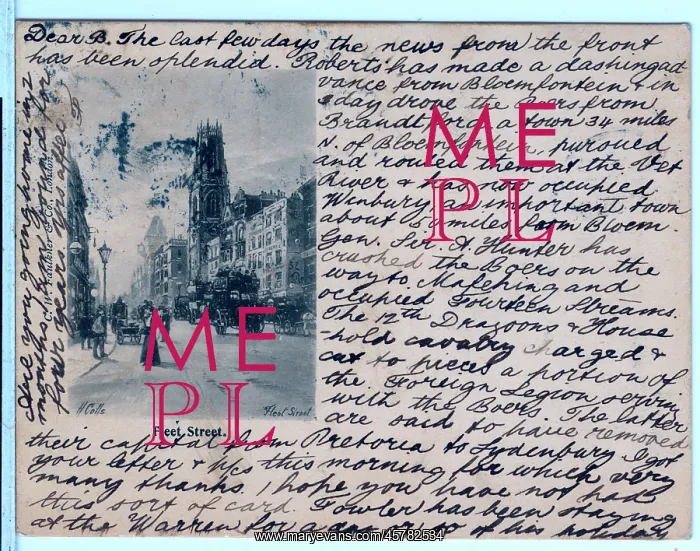 Dear B. The last few days the news from the front
has been splendid. Roberts has made a dashing ad
vance from Bloemfontein & in
3 day drove the Boers from
Brandtford, a town 34 miles
N. of Bloemfontein, pursued
and routed them at the Vet
River & has now occupied
Winburg, an important town
about 50 miles from Bloem.
Gen. Sir. A. Hunter has
crushed the Boers on the
way to Mafeking and
occupied Fourteen Streams.
The 12th Dragoons & House
-hold cavalry charged &
cut to pieces a portion of
the Foreign Legion serving
with the Boers. The latter
are said to have removed
their capital from Pretoria to Lydenburg. I got
your letter & p/cs this morning for which very
many thanks. I hope you have not had
this sort of card. Fowler has been staying
at the Warren for a day or so of his holiday
months
four years
C.W. Faulkner & Co. London.
H Colls
Fleet Street
Fleet Street.
ME
PL
ME
PL
www.maryevans.com 45782534